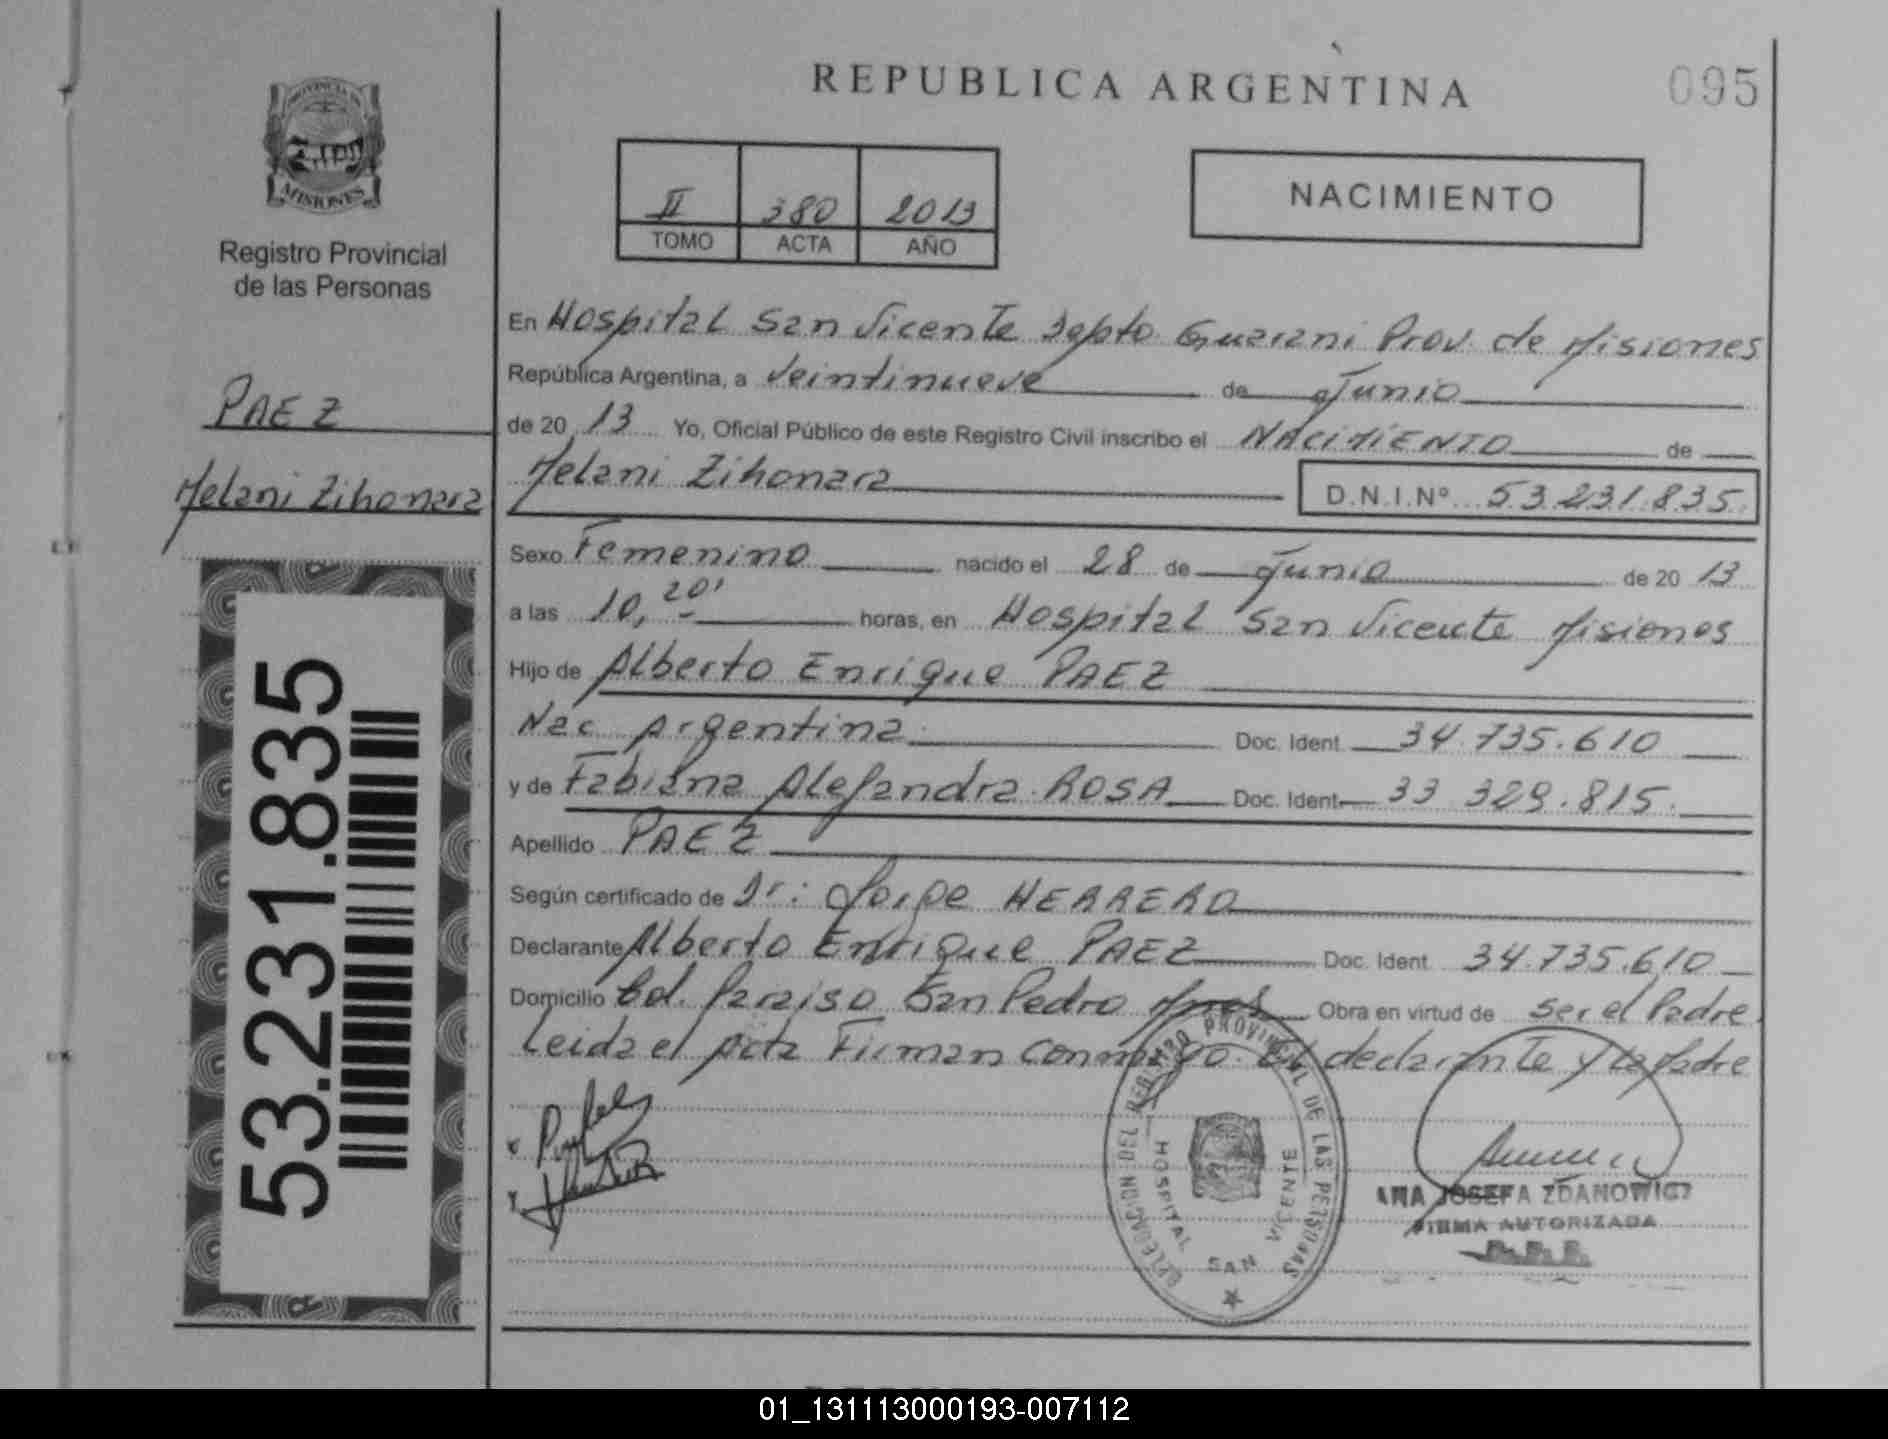 REPUBLICA ARGENTINA
095
PROVINCIA DE
MISIONES
Registro Provincial
de las Personas
II 380 2013
TOMO ACTA AÑO
NACIMIENTO
PAEZ
Melani Zihonara
53.231.835
En Hospital San Vicente Depto Guarani Prov. de Misiones
República Argentina, a Veintinueve de Junio
de 20 13 Yo, Oficial Público de este Registro Civil inscribo el NACIMIENTO de
Melani Zihonara D.N.I.Nº 53.231.835.
Sexo Femenino nacido el 28 de Junio de 20 13
a las 10,20' horas, en Hospital San Vicente Misiones
Hijo de Alberto Enrique PAEZ
Nac. Argentina Doc. Ident. 34.735.610
y de Fabiana Alejandra ROSA Doc. Ident. 33 329.815.
Apellido PAEZ
Según certificado de Dr: Jorge HERRERO
Declarante Alberto Enrique PAEZ Doc. Ident. 34.735.610
Domicilio Bd. Paraiso San Pedro Mnes Obra en virtud de ser el Padre
Leida el Acta Firman conmigo. El declarante y la Madre
DELEGACION DEL REGISTRO PROVINCIAL DE LAS PERSONAS
HOSPITAL SAN VICENTE
ANA JOSEFA ZDANOWICZ
FIRMA AUTORIZADA
01_131113000193-007112